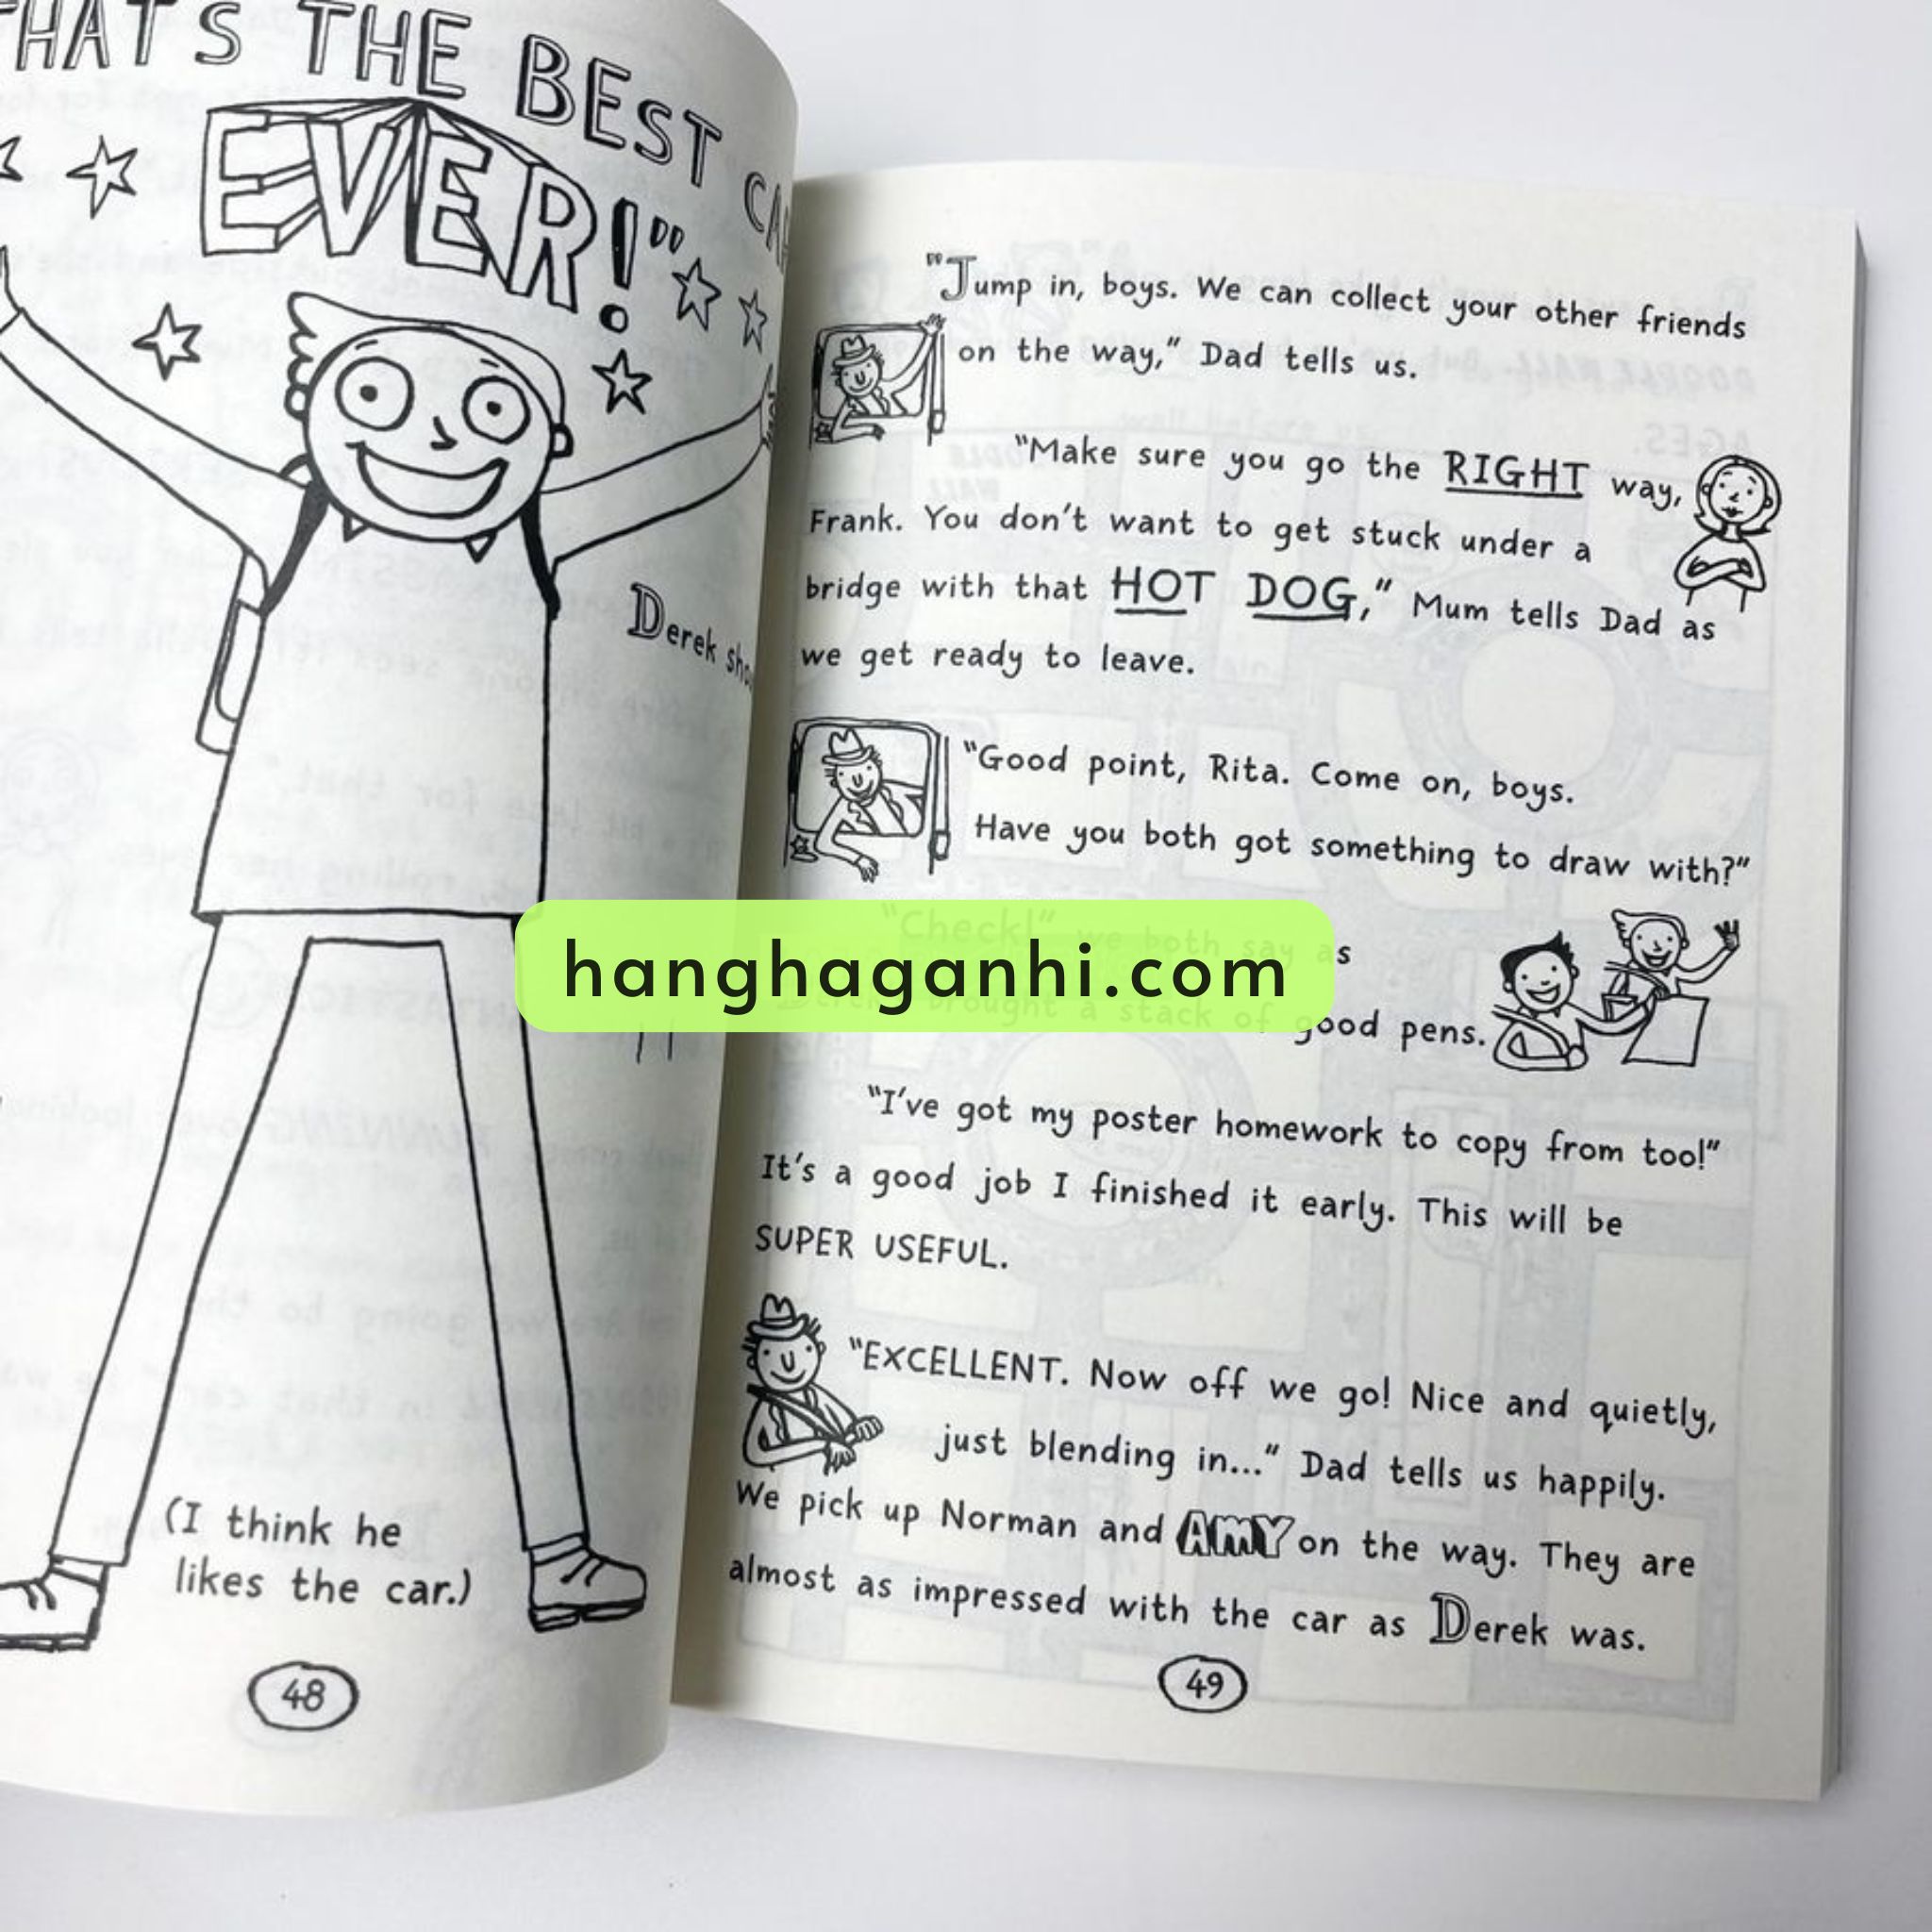 THAT'S THE BEST CA
EVER!"
Derek sho
(I think he
likes the car.)
48
"Jump in, boys. We can collect your other friends
on the way," Dad tells us.
"Make sure you go the RIGHT way,
Frank. You don't want to get stuck under a
bridge with that HOT DOG," Mum tells Dad as
we get ready to leave.
"Good point, Rita. Come on, boys.
Have you both got something to draw with?"
"Check!" we both say as
brought a stack of good pens.
hanghaganhi.com
"I've got my poster homework to copy from too!"
It's a good job I finished it early. This will be
SUPER USEFUL.
"EXCELLENT. Now off we go! Nice and quietly,
just blending in..." Dad tells us happily.
We pick up Norman and AMY on the way. They are
almost as impressed with the car as Derek was.
49